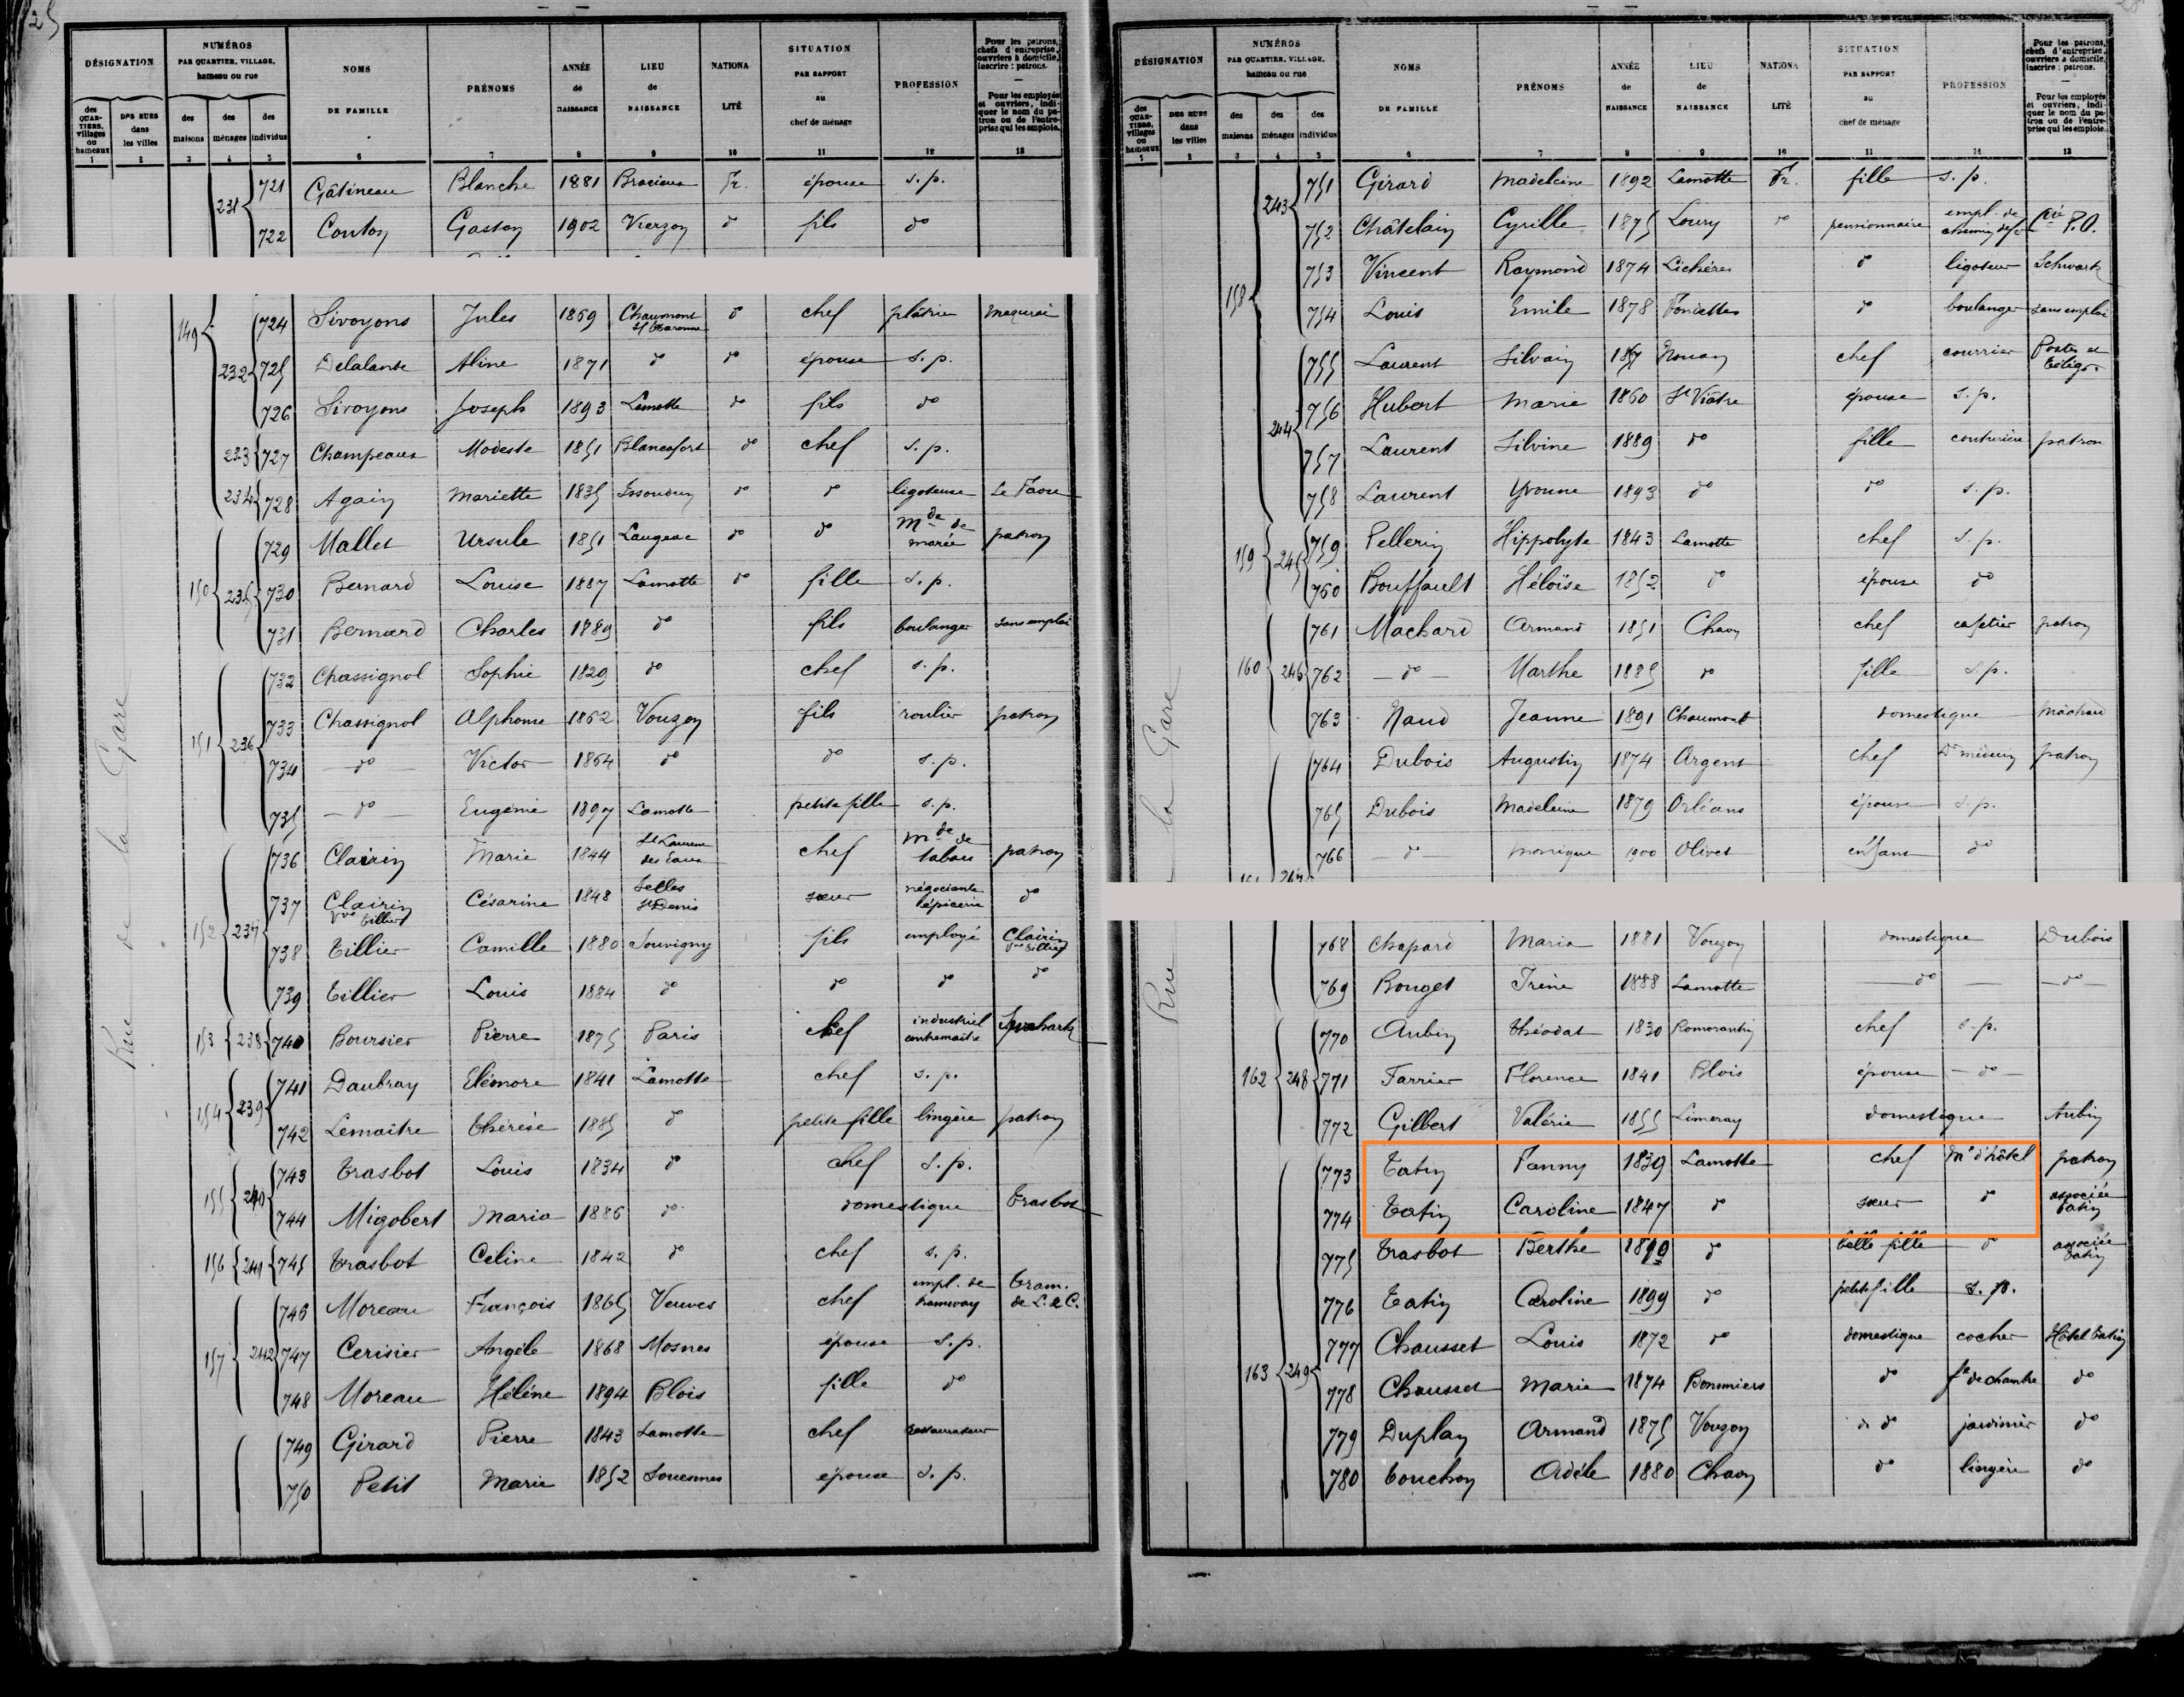 25
DÉSIGNATION
NUMÉROS PAR QUARTIER, VILLAGE, hameau ou rue
NOMS DE FAMILLE
PRÉNOMS
ANNÉE de NAISSANCE
LIEU de NAISSANCE
NATIONALITÉ
SITUATION PAR RAPPORT au chef de ménage
PROFESSION
Pour les patrons, chefs d'entreprise, ouvriers à domicile, inscrire : patrons.
Pour les employés et ouvriers, indiquer le nom du patron ou de l'entreprise qui les emploie.
des QUARTIERS, villages ou hameaux
DES RUES dans les villes
des maisons
des ménages
des individus
1 2 3 4 5 6 7 8 9 10 11 12 13
Rue de la Gare
231 721 Gâtineau Blanche 1881 Bracieux Fr. épouse s. p.
722 Couton Gaston 1902 Vierzon do fils do
149
232 724 Sivoyons Jules 1869 Chaumont s/ Tharonne do chef plâtrier
725 Delalande Aline 1871 do do épouse s. p.
726 Sivoyons Joseph 1893 Lamotte do fils do
233 727 Champeaux Modeste 1851 Blancafort do chef s. p.
234 728 Again Mariette 1835 Issoudun do do ligoteuse Le Faou
150 235 729 Mallet Ursule 1851 Langeac do do Mde de marée patron
730 Bernard Louise 1887 Lamotte do fille s. p.
731 Bernard Charles 1889 do fils boulanger sans emploi
151 236 732 Chassignol Sophie 1829 do chef s. p.
733 Chassignol Alphonse 1862 Vouzon fils roulier patron
734 — do — Victor 1864 do do s. p.
735 — do — Eugénie 1897 Lamotte petite fille s. p.
152 237 736 Clairin Marie 1844 St Laurent des Eaux chef Mde de tabacs patron
737 Clairin Vve Tillier Césarine 1848 Selles St Denis sœur négociante épicerie do
738 Tillier Camille 1880 Souvigny fils employé Clairin Vve Tillier
739 Tillier Louis 1884 do do do do
153 238 740 Boursier Pierre 1875 Paris chef industriel contremaître
154 239 741 Daubray Eléonore 1841 Lamotte chef s. p.
742 Lemaître Thérèse 1885 do petite fille lingère patron
155 240 743 Trasbot Louis 1834 do chef s. p.
744 Migobert Maria 1886 do domestique Trasbot
156 241 745 Trasbot Celine 1842 do chef s. p.
157 242 746 Moreau François 1865 Veuves chef empl. de tramway Tram. de L. & C.
747 Cerisier Angèle 1868 Mosnes épouse s. p.
748 Moreau Hélène 1894 Blois fille do
749 Girard Pierre 1843 Lamotte chef restaurateur
750 Petit Marie 1852 Souesmes épouse s. p.
DÉSIGNATION
NUMÉROS PAR QUARTIER, VILLAGE, hameau ou rue
NOMS DE FAMILLE
PRÉNOMS
ANNÉE de NAISSANCE
LIEU de NAISSANCE
NATIONALITÉ
SITUATION PAR RAPPORT au chef de ménage
PROFESSION
Pour les patrons, chefs d'entreprise, ouvriers à domicile, inscrire : patrons.
Pour les employés et ouvriers, indiquer le nom du patron ou de l'entreprise qui les emploie.
des QUARTIERS, villages ou hameaux
DES RUES dans les villes
des maisons
des ménages
des individus
1 2 3 4 5 6 7 8 9 10 11 12 13
Rue la Gare
158 243 751 Girard Madeleine 1892 Lamotte Fr. fille s. p.
752 Châtelain Cyrille 1875 Loury do pensionnaire empl. de chemin de f. Cie P.O.
753 Vincent Raymond 1874 Lichères do ligoteur Schwartz
754 Louis Emile 1878 Fondettes do boulanger sans emploi
244 755 Laurent Silvain Nouan chef courrier Postes et Télégr.
756 Hubert Marie 1860 St Viâtre épouse s. p.
757 Laurent Silvine 1889 do fille couturière patron
758 Laurent Yvonne 1893 do do s. p.
159 245 759 Pellerin Hippolyte 1843 Lamotte chef s. p.
760 Bouffault Héloïse 1852 do épouse do
160 246 761 Machard Armand 1851 Chaon chef cafetier patron
762 — do — Marthe 1885 do fille s. p.
763 Naud Jeanne 1891 Chaumont domestique Machard
764 Dubois Augustin 1874 Argent chef Dr médecin patron
765 Dubois Madeleine 1879 Orléans épouse s. p.
766 — do — Monique 1900 Olivet enfant do
768 Chapard Maria 1881 Vouzon domestique Dubois
769 Bouget Irène 1888 Lamotte — do — — do —
162 248 770 Aubin Théodat 1830 Romorantin chef s. p.
771 Farrier Florence 1841 Blois épouse — do —
772 Gilbert Valérie 1855 Limeray domestique Aubin
163 249 773 Tatin Fanny 1839 Lamotte chef Me d'hôtel patron
774 Tatin Caroline 1847 do sœur do associée Tatin
775 Trasbot Berthe do belle fille do associée Tatin
776 Tatin Caroline 1899 do petite fille s. p.
777 Chausset Louis 1872 do domestique cocher Hôtel Tatin
778 Chausset Marie 1874 Bommiers do fe de chambre do
779 Duplan Armand 1875 Vouzon do jardinier do
780 Touchon Adèle 1880 Chaon do lingère do